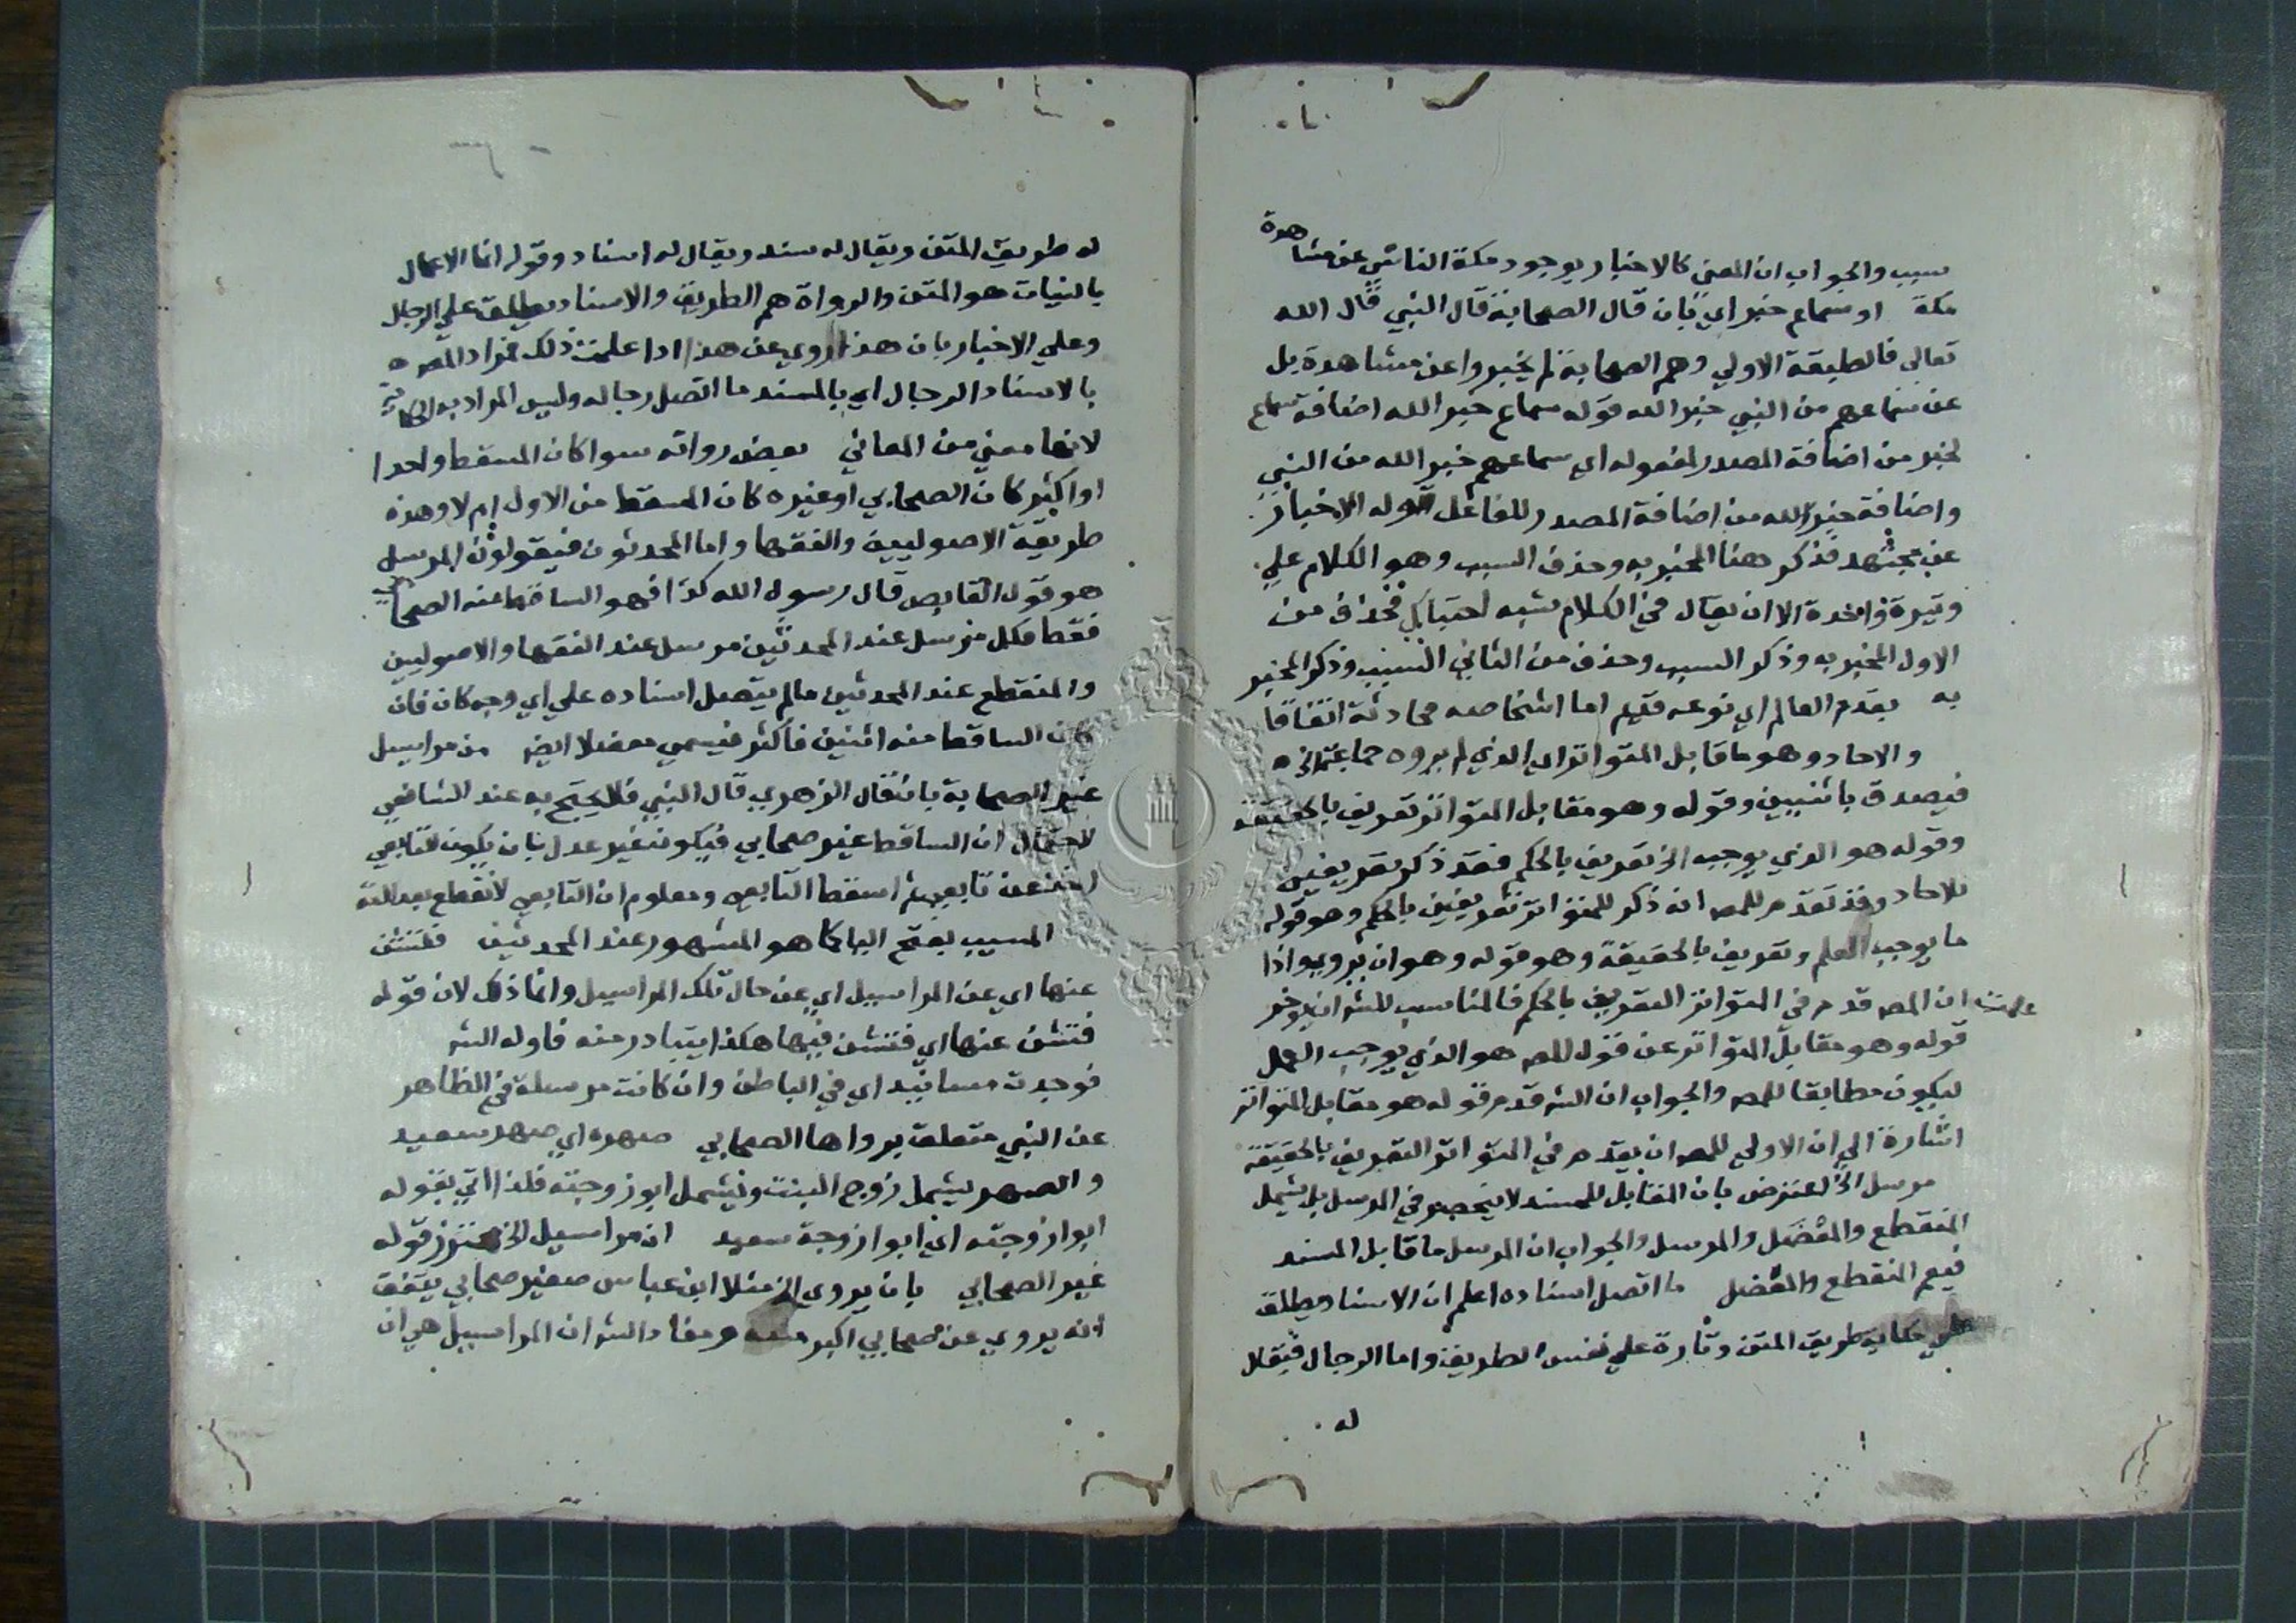 سبب والجواب ان المعنى كالاخبار بوجود مكة الناشي عن مشاهدة
مكة او سماع خبر اي بان قال الصحابة قال النبي قال الله
تعالى فالطبقة الاولي وهم الصحابة لم يخبروا عن مشاهدة بل
عن سماعهم من النبي خبر الله قوله سماع خبر الله اضافة سماع
لخبر من اضافة المصدر لمفعوله اي سماعهم خبر الله من النبي
واضافة خبر الله من اضافة المصدر للفاعل قوله الاخبار
عن مجتهد فذكر هنا المخبر به وحذف السبب وهو الكلام علي
وتيرة واحدة الا ان يقال في الكلام شبه احتباك فحذف من
الاول المخبر به وذكر السبب وحذف من الثاني السبب وذكر المخبر
به بقدم العالم اي نوعه قديم اما اشخاصه محادثة اتفاقا
والاحاد وهو ما قابل المتواتر اي الذي لم يروه جماعة الخ
فيصدق باثنين وقوله وهو مقابل المتواتر تعريف بالحقيقة
وقوله هو الذي يوجب الخ تعريف بالحكم فقد ذكر تعريفين
للاحاد وقد تقدم للمصه انه ذكر للمتواتر تعريفين بالحكم وهو قوله
ما يوجب العلم وتعريف بالحقيقة وهو قوله وهو ان يروي واذا
علمت ان المصه قدم في المتواتر التعريف بالحكم فالمناسب للشه ان يوخر
قوله وهو مقابل المتواتر عن قول المصه هو الذي يوجب العمل
ليكون مطابقا للمصه والجواب ان الشه قدم قوله هو مقابل المتواتر
اشارة الي ان الاولي للمصه ان يقدم في المتواتر التعريف بالحقيقة
مرسل الخ اعترض بان المقابل للمسند لا ينحصر في المرسل بل يشمل
المنقطع والمعضل والمرسل والجواب ان المرسل ما قابل المسند
فيعم المنقطع والمعضل ما اتصل اسناده اعلم ان الاسناد يطلق
علي حكاية طريق المتن وتارة علي نفس الطريق واما الرجال فيقال
له
له طريق المتن ويقال له سند ويقال له اسناد وقوله انما الاعمال
بالنيات هو المتن والرواة هم الطريق والاسناد يطلق علي الرجال
وعلي الاخبار بان هذا روي عن هذا اذا علمت ذلك فمراد المصه
بالاسناد الرجال اي بالمسند ما اتصل رجاله وليس المراد به الحكاية
لانها معني من المعاني بعض رواته سوا كان المسقط واحدا
او اكثر كان الصحابي او غيره كان المسقط من الاول ام لا وهذه
طريقة الاصوليين والفقها واما المحدثون فيقولون المرسل
هو قول التابعي قال رسول الله كذا فهو الساقط منه الصحابي
فقط فكل مرسل عند المحدثين مرسل عند الفقها والاصوليين
والمنقطع عند المحدثين ما لم يتصل اسناده علي اي وجه كان فان
كان الساقط منه اثنين فاكثر فيسمي معضلا ايضه من مراسيل
غير الصحابة بان قال الزهري قال النبي فلا يحتج به عند الشافعي
لاحتمال ان الساقط غير صحابي فيكون غير عدل بان يكون التابعي
اخذ عن تابعي ثم اسقط التابعي ومعلوم ان التابعي لا نقطع بعدالته
المسيب بفتح اليا كما هو المشهور عند المحدثين فتشت
عنها اي عن المراسيل اي عن حال تلك المراسيل وانما ذلك لان قوله
فتش عنها اي فتش فيها هكذا يتبادر منه فاوله الشه
فوجدت مسانيد اي في الباطن وان كانت مرسلة في الظاهر
عن النبي متعلق برواها الصحابي صهره اي صهر سعيد
والصهر يشمل زوج البنت ويشمل ابو زوجته فلذا اتي بقوله
ابو زوجته اي ابو زوجة سعيد ان مراسيل الخ محترز قوله
غير الصحابي بان يروي الخ مثلا ابن عباس صغير صحابي يتفق
انه يروي عن صحابي اكبر منه ومفاد الشه ان المراسيل هي ان